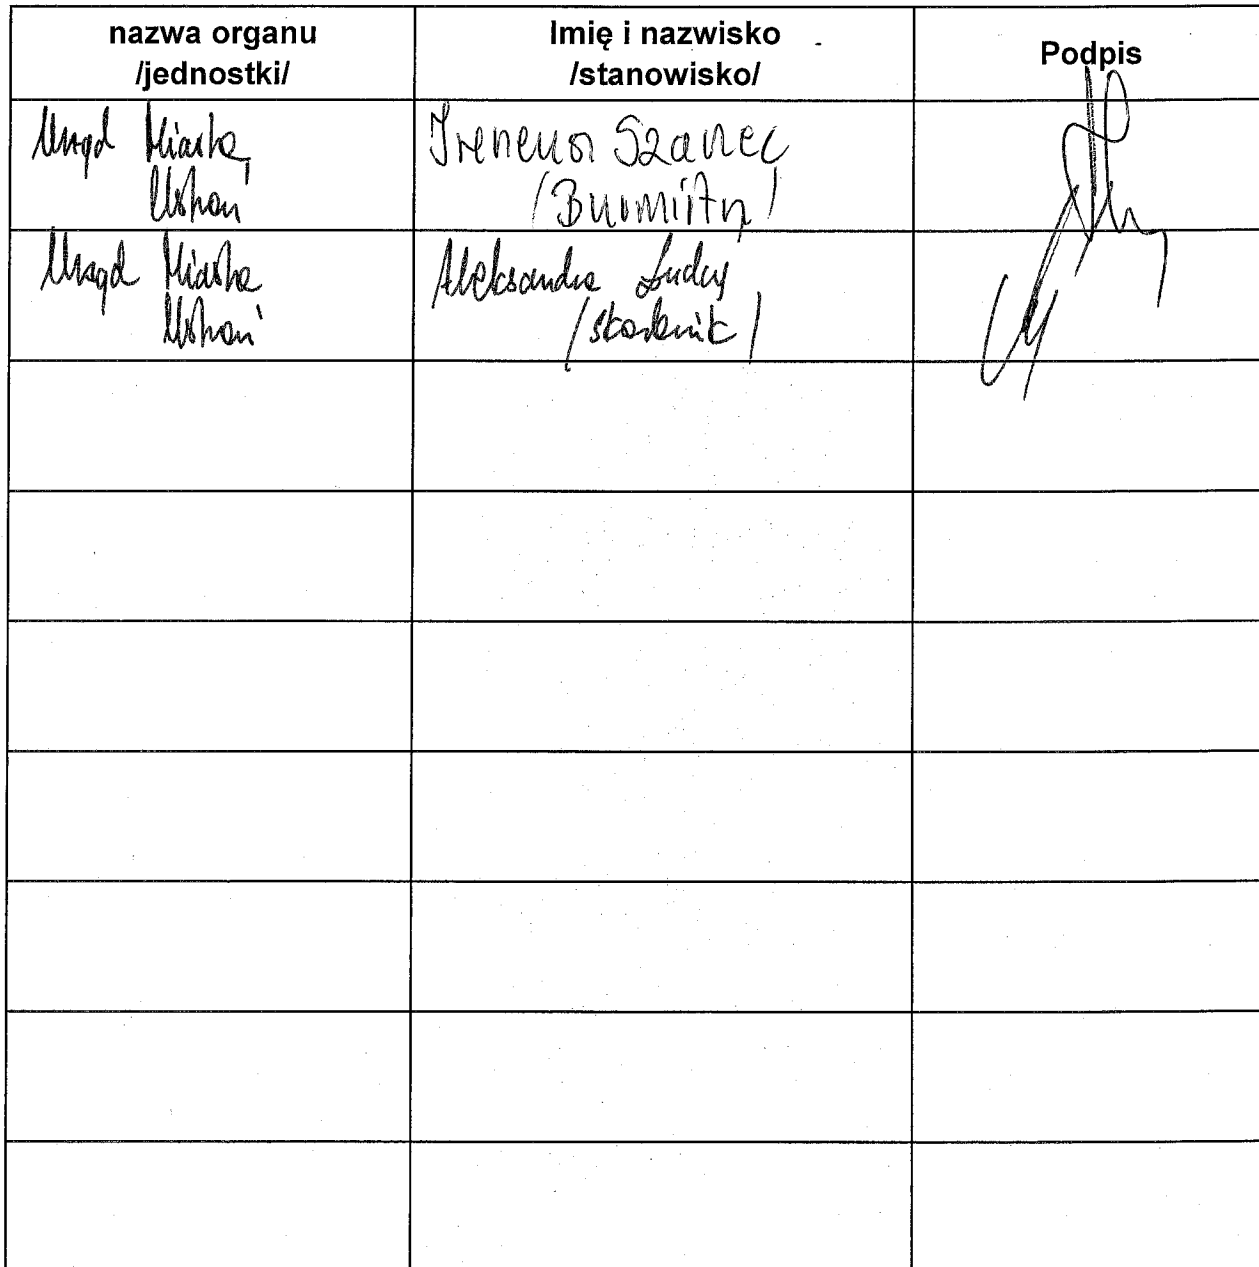 nazwa organu
/jednostki/
Imię i nazwisko
/stanowisko/
Podpis
Urząd Miasta
Ustroń
Ireneusz Szarzec
/Burmistrz/
Urząd Miasta
Ustroń
Aleksandra
/skarbnik/